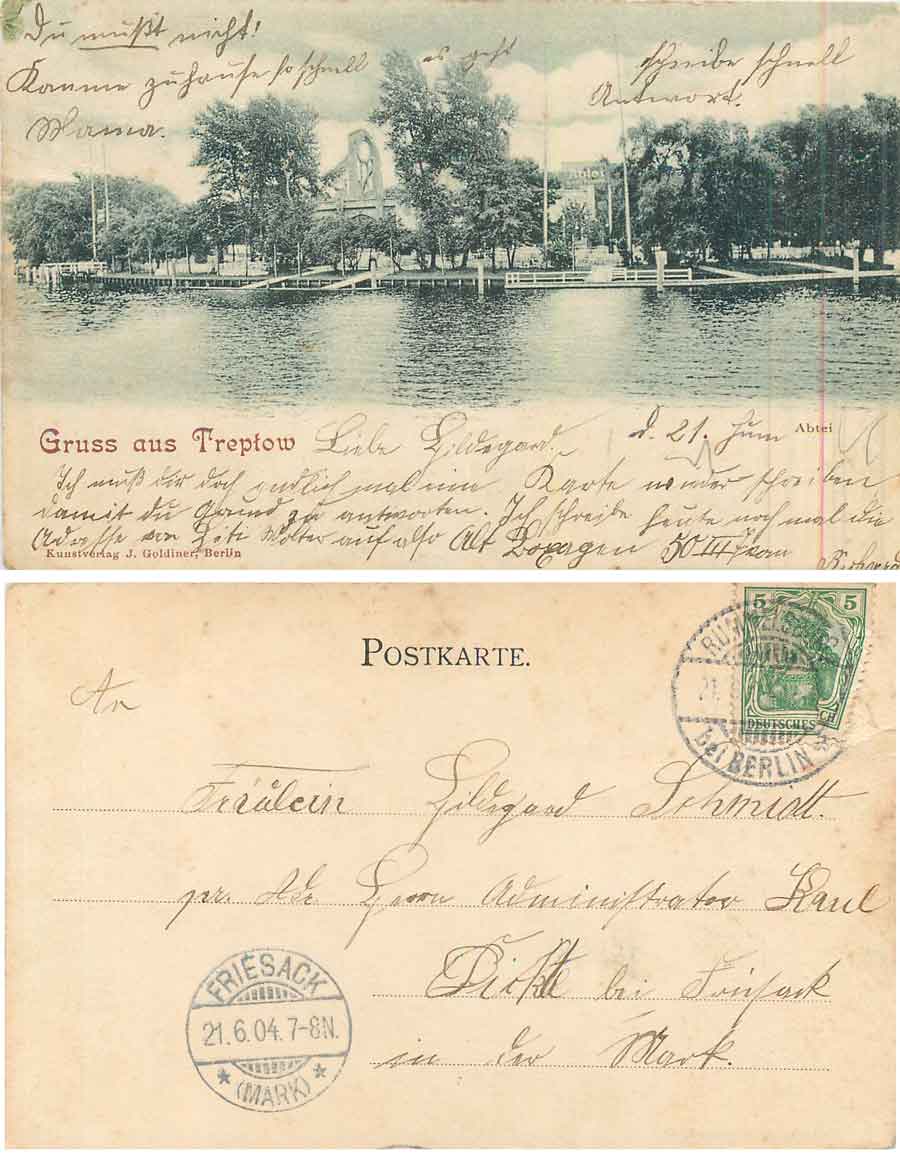 Du mußt nicht!
Komme zuhause so schnell es geht
schreibe schnell
Antwort.
Mama.
Abtei
Gruss aus Treptow
Liebe Hildegard.
d. 21. Juni
Abtei
Ich muß dir doch endlich mal eine Karte wieder schreiben
damit du Grund zu antworten. Ich schreibe heute noch mal die
Adresse von Wolter auf also Alt Boxagen 50 III
Kunstverlag J. Goldiner, Berlin
POSTKARTE.
5 5
DEUTSCHES
bei BERLIN
An
Fräulein Hildegard Schmidt.
pr. Adr. Herrn Administrator Karl
bei Friesack
in der Mark.
FRIESACK
21.6.04.7-8N.
* (MARK) *